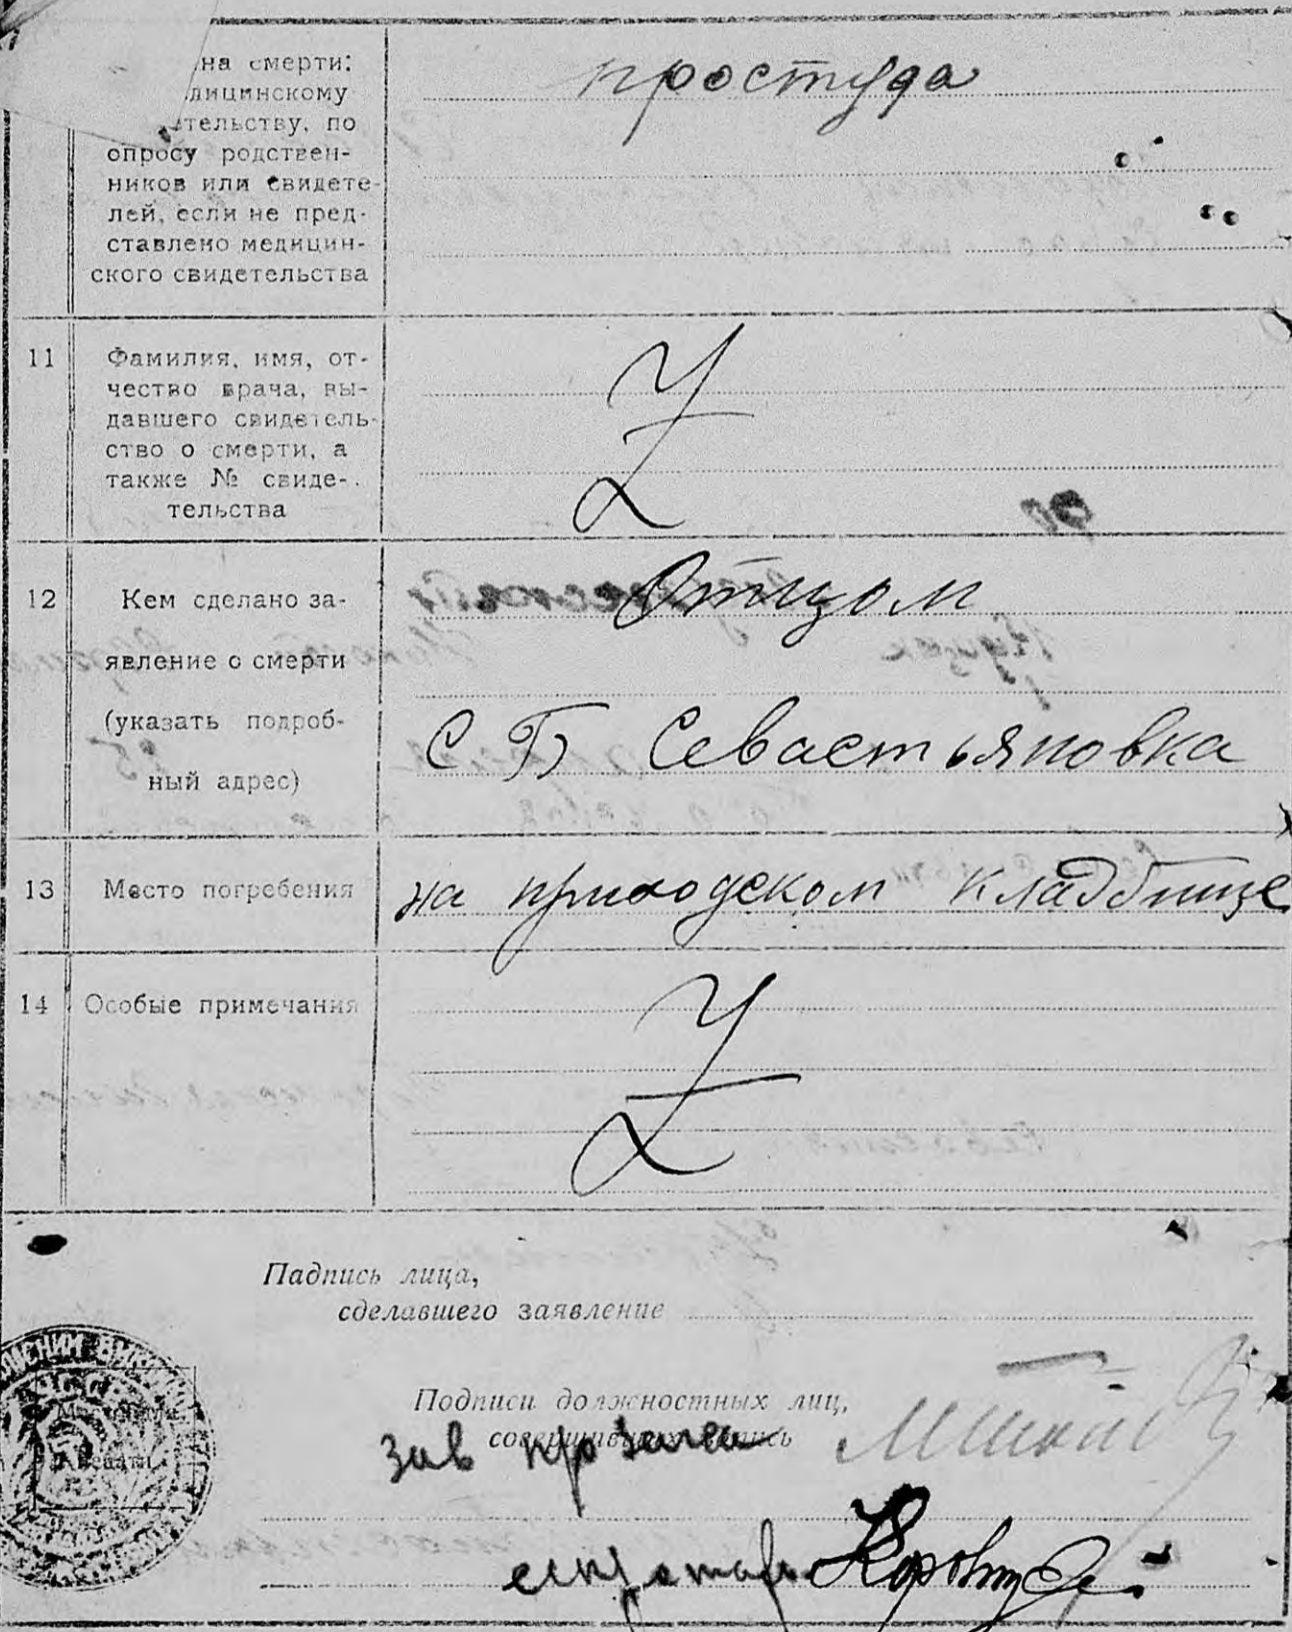 на смерти:
дицинскому
тельству, по
опросу родствен-
ников или свидете-
лей, если не пред-
ставлено медицин-
ского свидетельства
простуда
11
Фамилия, имя, от-
чество врача, вы-
давшего свидетель-
ство о смерти, а
также № свиде-
тельства
Z
12
Кем сделано за-
явление о смерти
(указать подроб-
ный адрес)
Отцом
С Б Севастьяновка
13
Место погребения
на приходском кладбище
14
Особые примечания
Z
Падпись лица,
сделавшего заявление
Подписи должностных лиц,
совершивших запись
зав
секретарь